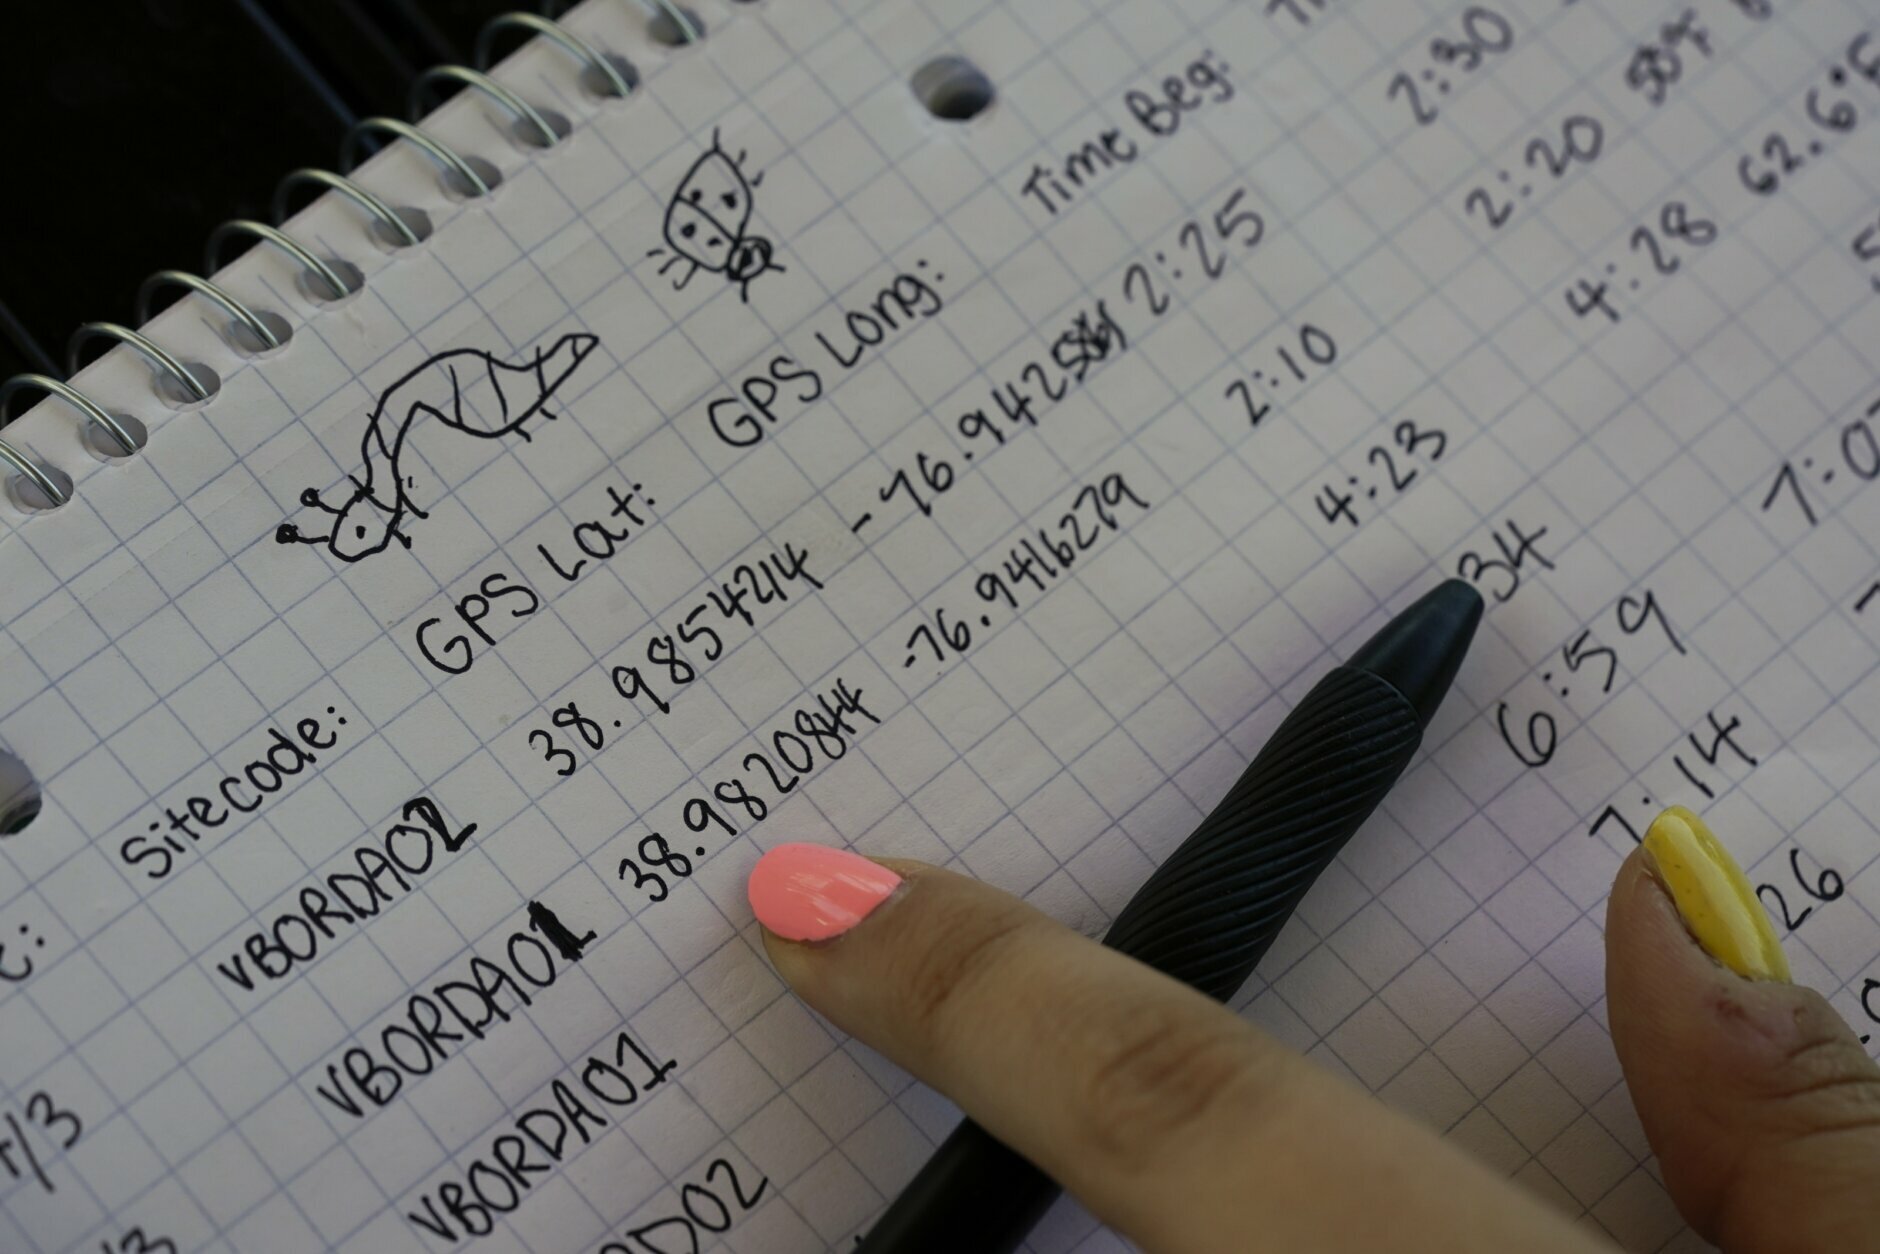 Sitecode: GPS Lat: GPS Long: Time Beg:
VBORDA02 38.9854214 -76.9425 2:25 2:30
VBORDA01 38.9820844 -76.9416279 2:10 2:20
VBORDA01 4:23 4:28 62.6°F
34
6:59
7:14
26